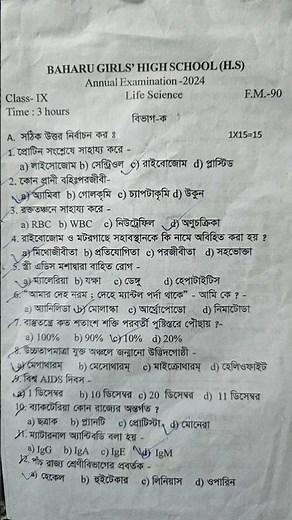 BAHARU GIRLS' HIGH SCHOOL (H.S)
Annual Examination -2024
Class- IX Life Science F.M.-90
Time : 3 hours
বিভাগ-ক
A. সঠিক উত্তর নির্বাচন কর ঃ 1X15=15
1. প্রোটিন সংশ্লেষে সাহায্য করে -
a) লাইসোজোম b) সেন্ট্রিওল c) রাইবোজোম d) প্লাস্টিড
2. কোন প্রানী বহিঃপরজীবী-
a) অ্যামিবা b) গোলকৃমি c) চ্যাপটাকৃমি d) উকুন
3. রক্ততঞ্চনে সাহায্য করে -
a) RBC b) WBC c) নিউট্রোফিল d) অণুচক্রিকা
4. রাইবোজোম ও মটরগাছে সহাবস্থানকে কি নামে অবিহিত করা হয় ?
a) মিথোজীবীতা b) প্রতিযোগিতা c) পরজীবীতা d) সহভোক্তা
5. স্ত্রী এডিস মশাদ্বারা বাহিত রোগ -
a) ম্যালেরিয়া b) যক্ষা c) ডেঙ্গু d) হেপাটাইটিস
6. "আমার দেহ নরম ; দেহে ম্যান্টল পর্দা থাকে" - আমি কে ? -
a) অ্যানিলিডা b) মোলাস্কা c) আর্থ্রোপোডা d) নিমাটোডা
7. বাস্তুতন্ত্রে কত শতাংশ শক্তি পরবর্তী পুষ্টিস্তরে পৌছায় ?-
a) 100% b) 90% c) 10% d) 20%
8. উচ্চতাপমাত্রা যুক্ত অঞ্চলে জন্মানো উদ্ভিদগোষ্ঠী -
a) মেগাথারম্ b) মেসোথারম্ c) মাইক্রোথারম্ d) হেলিওফাইট
9. বিশ্ব AIDS দিবস -
a) 1 ডিসেম্বর b) 10 ডিসেম্বর c) 20 ডিসেম্বর d) 11 ডিসেম্বর
10. ব্যাকটেরিয়া কোন রাজ্যের অন্তর্গত ?
a) ছত্রাক b) প্ল্যানটি c) প্রোটিস্টা d) মোনেরা
11. ম্যাটারনাল অ্যান্টিবডি বলা হয় -
a) IgG b) IgA c) IgE d) IgM
12. পাঁচ রাজ্য শ্রেণীবিভাগের প্রবর্তক -
a) হেকেল b) হুইটেকার c) লিনিয়াস d) ওপারিন